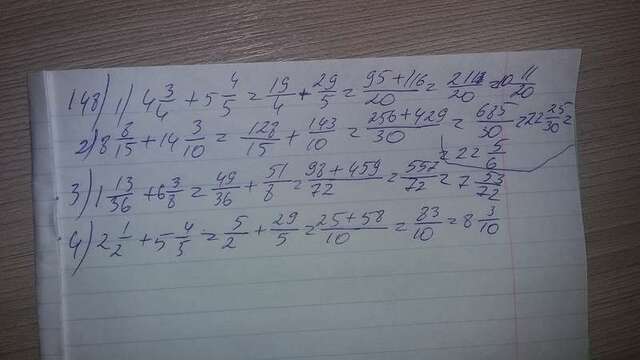 148) 1) 4 3/4 + 5 4/5 = 19/4 + 29/5 = 95+116/20 = 211/20 = 10 11/20
2) 8 8/15 + 14 3/10 = 128/15 + 143/10 = 256+429/30 = 685/30 = 22 25/30 =
= 22 5/6
3) 1 13/36 + 6 3/8 = 49/36 + 51/8 = 98+459/72 = 557/72 = 7 53/72
4) 2 1/2 + 5 4/5 = 5/2 + 29/5 = 25+58/10 = 83/10 = 8 3/10